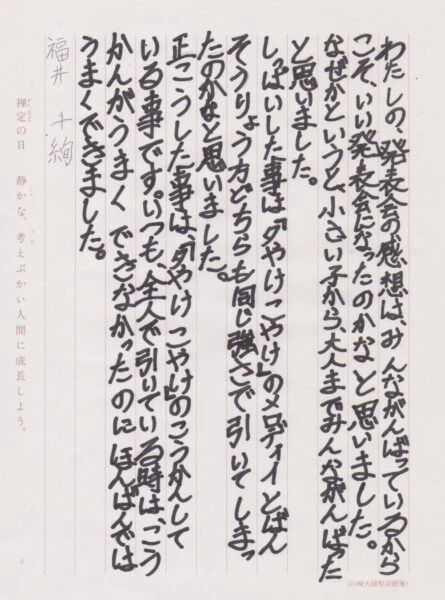 わたしの、発表会の感想は、みんながんばっているから
こそ、いい発表会になったのかなと思いました。
なぜかというと、小さい子から、大人までみんながんばった
と思いました。
しっぱいした事は、「夕やけこやけ」のメロディイとばん
そうりょう方どちらも同じ強さで引いてしまっ
たのかなと思いました。
正こうした事は、「夕やけこやけ」のこうかんして
いる事です。いつも、全人で引りている時は、こう
かんがうまくできなかったのにほんばんでは
うまくできました。
福井 千絢
禅定の日 静かな、考えぶかい人間に成長しよう。
(川崎大師聖詩便箋)